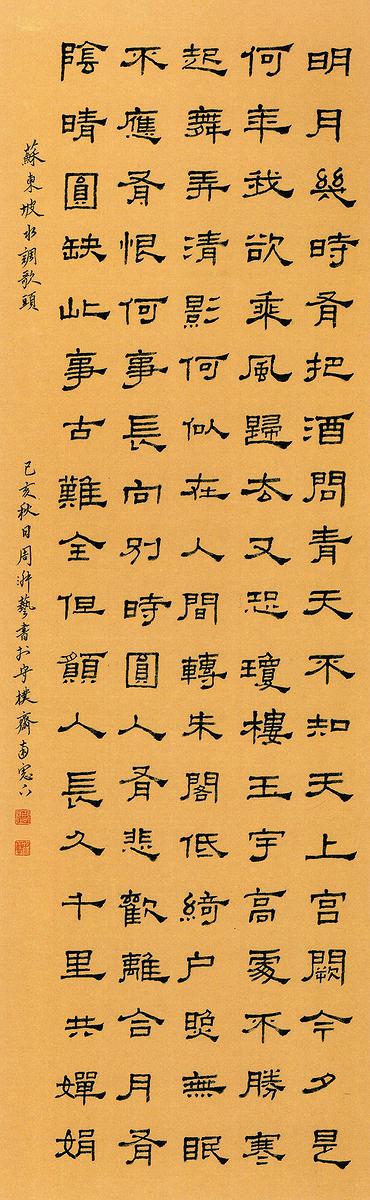 明月幾時有把酒問青天不知天上宮闕今夕是
何年我欲乘風歸去又恐瓊樓玉宇高處不勝寒
起舞弄清影何似在人間轉朱閣低綺戶照無眠
不應有恨何事長向別時圓人有悲歡離合月有
陰晴圓缺此事古難全但願人長久千里共嬋娟
蘇東坡水調歌頭 己亥秋日周藝書於守樸齋南窗下